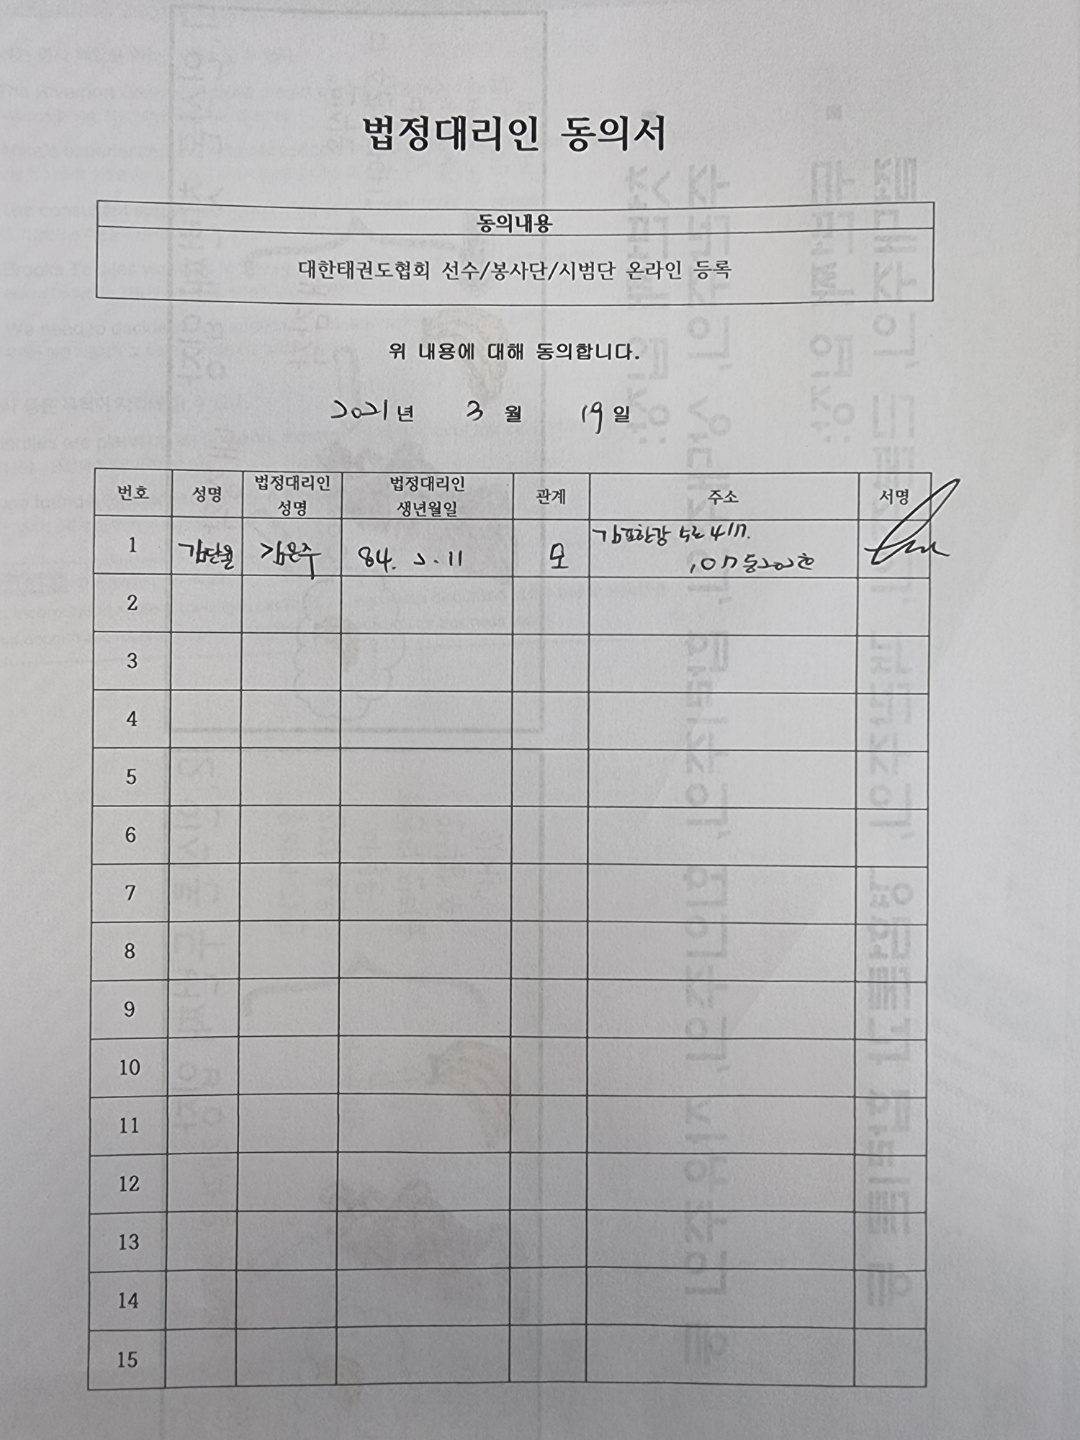 법정대리인 동의서
동의내용
대한태권도협회 선수/봉사단/시범단 온라인 등록
위 내용에 대해 동의합니다.
2021년 3월 19일
번호 성명 법정대리인 성명 법정대리인 생년월일 관계 주소 서명
1 김단율 김은주 84. 2. 11 모 김포한강 5로 417.
107동 202호
2
3
4
5
6
7
8
9
10
11
12
13
14
15